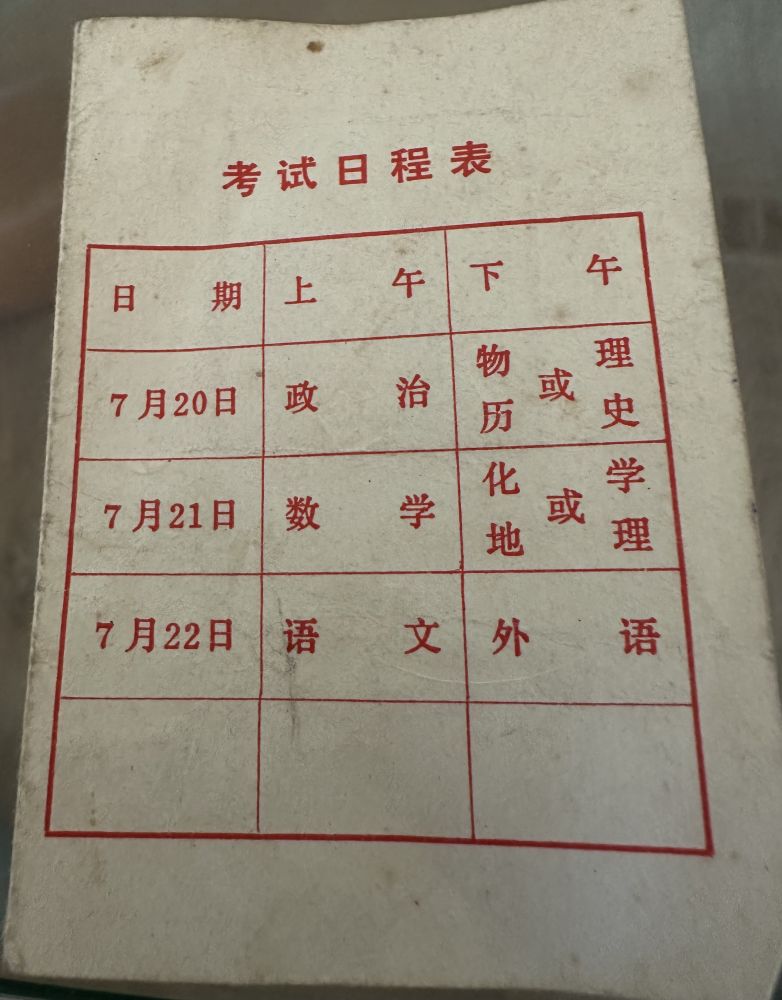 考试日程表
日期 上午 下午
7月20日 政治 物理或历史
7月21日 数学 化学或地理
7月22日 语文 外语